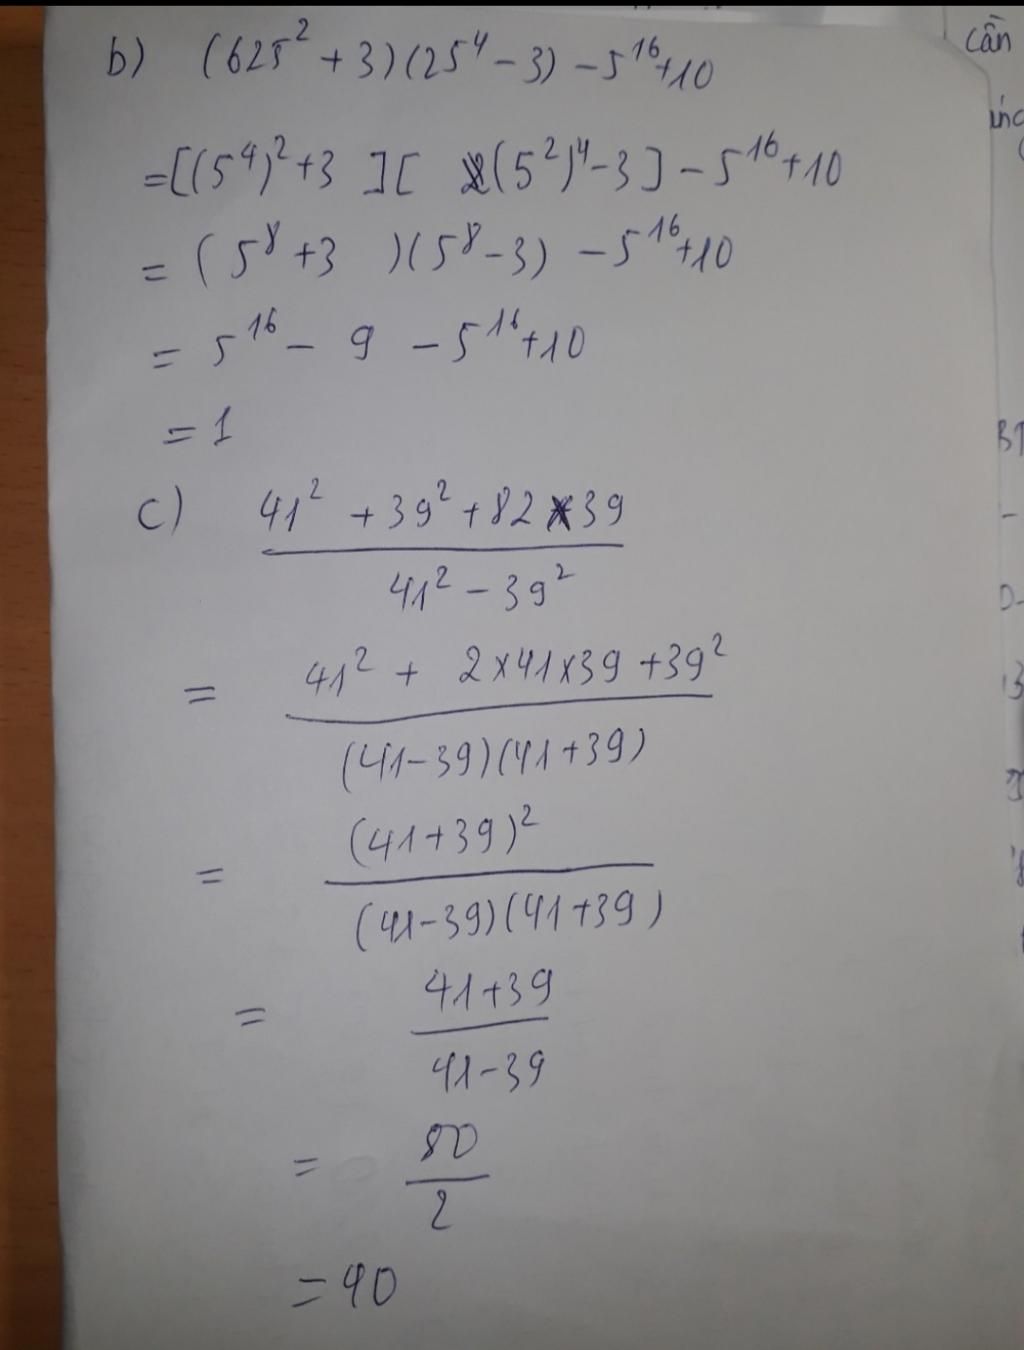 b) (625² + 3)(25⁴ - 3) - 5¹⁶ + 10
= [(5⁴)² + 3 ] [ (5²)⁴ - 3 ] - 5¹⁶ + 10
= ( 5⁸ + 3 )(5⁸ - 3) - 5¹⁶ + 10
= 5¹⁶ - 9 - 5¹⁶ + 10
= 1
c) 41² + 39² + 82 × 39
41² - 39²
= 41² + 2×41×39 + 39²
(41-39)(41+39)
= (41+39)²
(41-39)(41+39)
= 41+39
41-39
= 80
2
= 40
cần